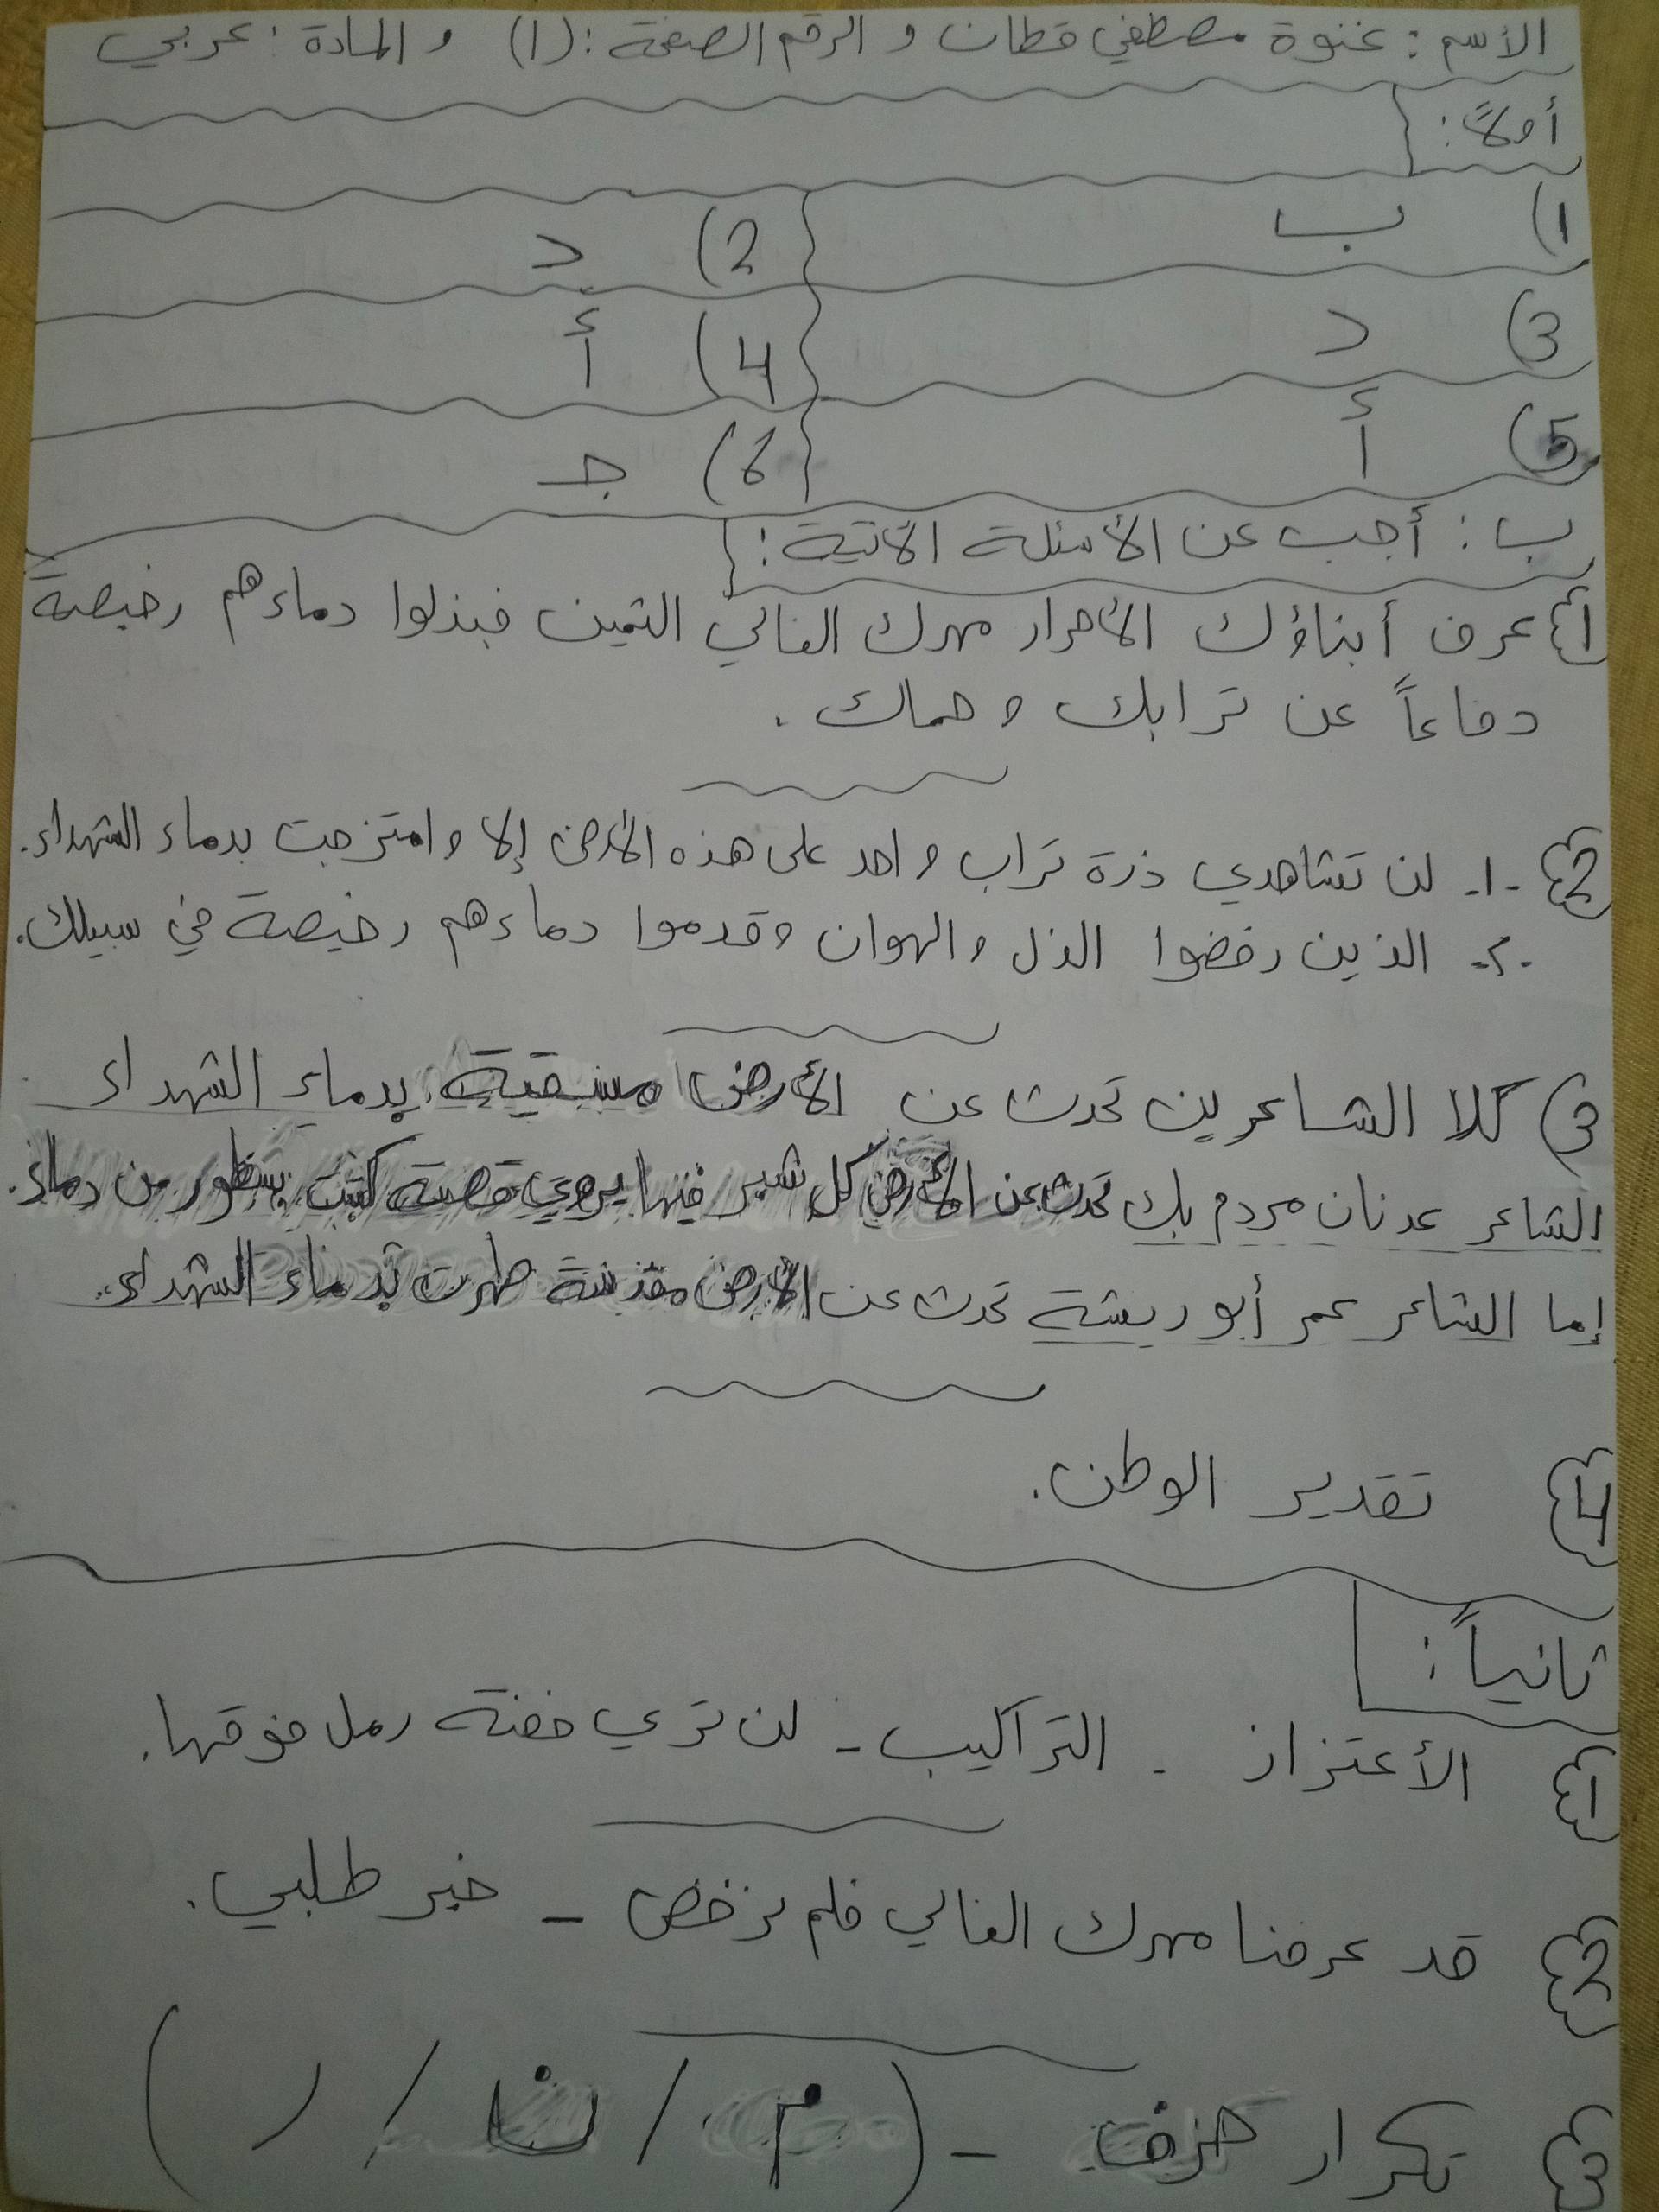 الأسم : غنوة مصطفى قطان و الرقم الصفحة : (1) و المادة : عربي
أولاً :
1) ب 2) د
3) د 4) أ
5) أ 6) جـ
ب : أجب عن الأسئلة الآتية :
1 عرف أبناؤك الأحرار مهرك الغالي الثمين فبذلوا دماءهم رخيصة
دفاعاً عن ترابك وحماك .
2 -1- لن تشاهدي ذرة تراب واحد على هذه الأرض إلا وامتزجت بدماء الشهداء .
-2- الذين رفضوا الذل والهوان وقدموا دماءهم رخيصة في سبيلك .
3) كلا الشاعرين تحدث عن الأرض مسقية بدماء الشهداء
الشاعر عدنان مردم بك تحدث عن الأرض كل شبر فيها يروي قصة كتبت بسطور من دماء .
إما الشاعر عمر أبو ريشة تحدث عن الأرض مقدسة طهرت بدماء الشهداء .
4 تقدير الوطن .
ثانياً :
1 الأعتزاز . التراكيب - لن تري حفنة رمل فوقها .
2 قد عرفنا مهرك الغالي فلم نرخص - خبر طلبي .
3 تكرار حرف - ( م / ن / ر )